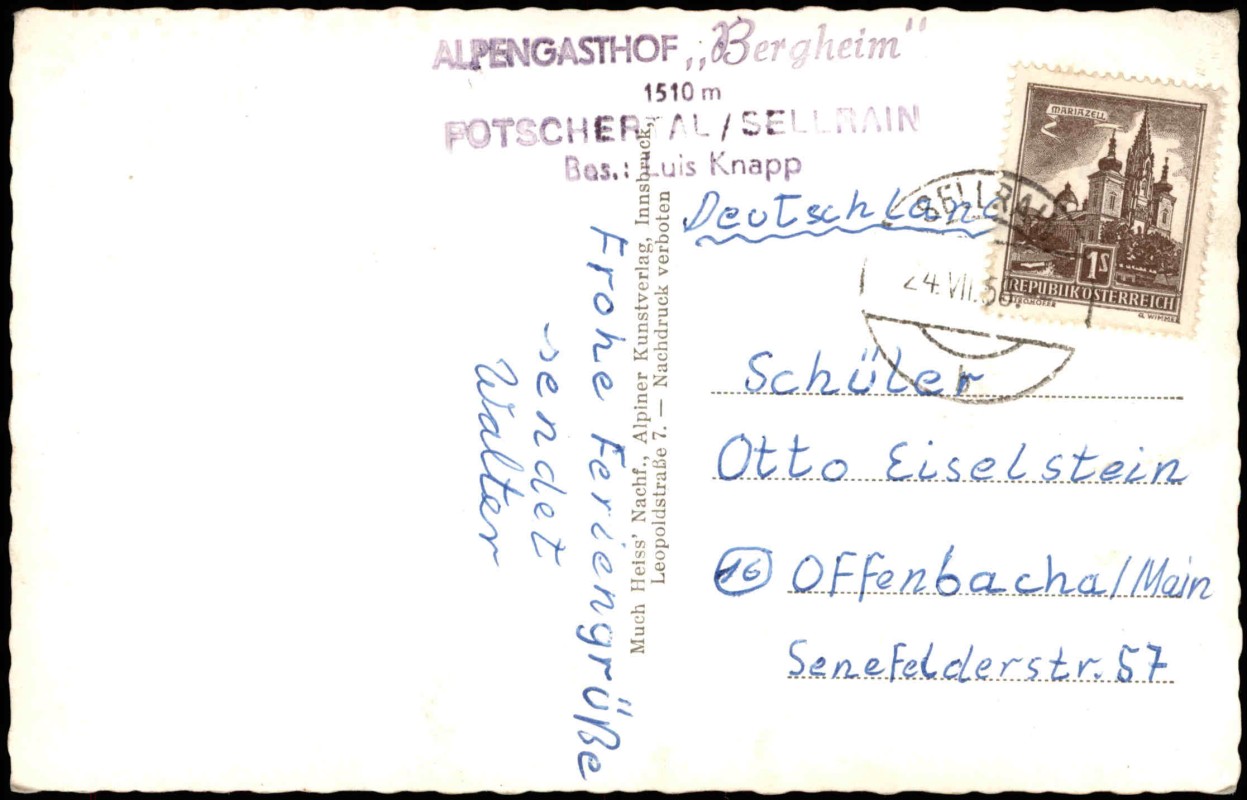 ALPENGASTHOF „Bergheim“
1510 m
POTSCHERTAL / SELLRAIN
Bes.: Luis Knapp
MARIAZELL
1S
REPUBLIK ÖSTERREICH
G. WIMMER
SELLRAIN
24. VII.
b
Deutschland
Schüler
Otto Eiselstein
16 Offenbach a/Main
Senefelderstr. 57
Much Heiss' Nachf., Alpiner Kunstverlag, Innsbruck,
Leopoldstraße 7. — Nachdruck verboten
Frohe Feriengrüße
sendet
Walter